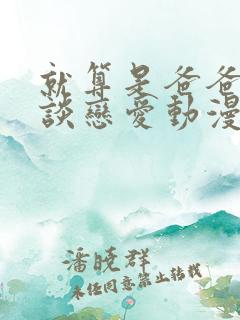 就算是爸爸
談戀愛動漫
潘曉群
未經同意禁止轉載